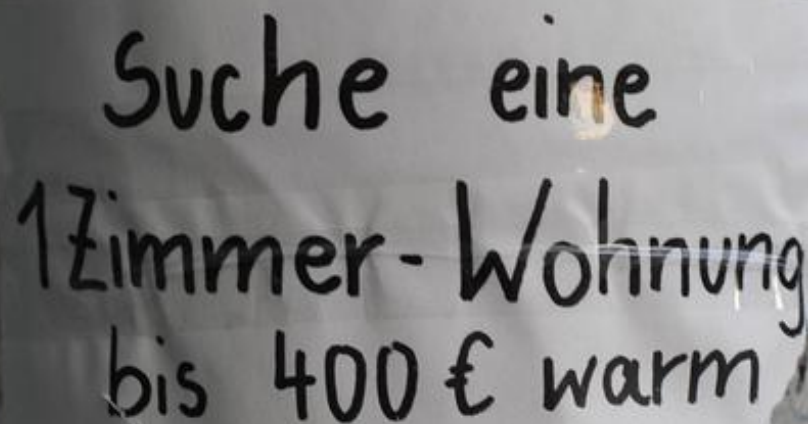 Suche eine
1Zimmer-Wohnung
bis 400 € warm